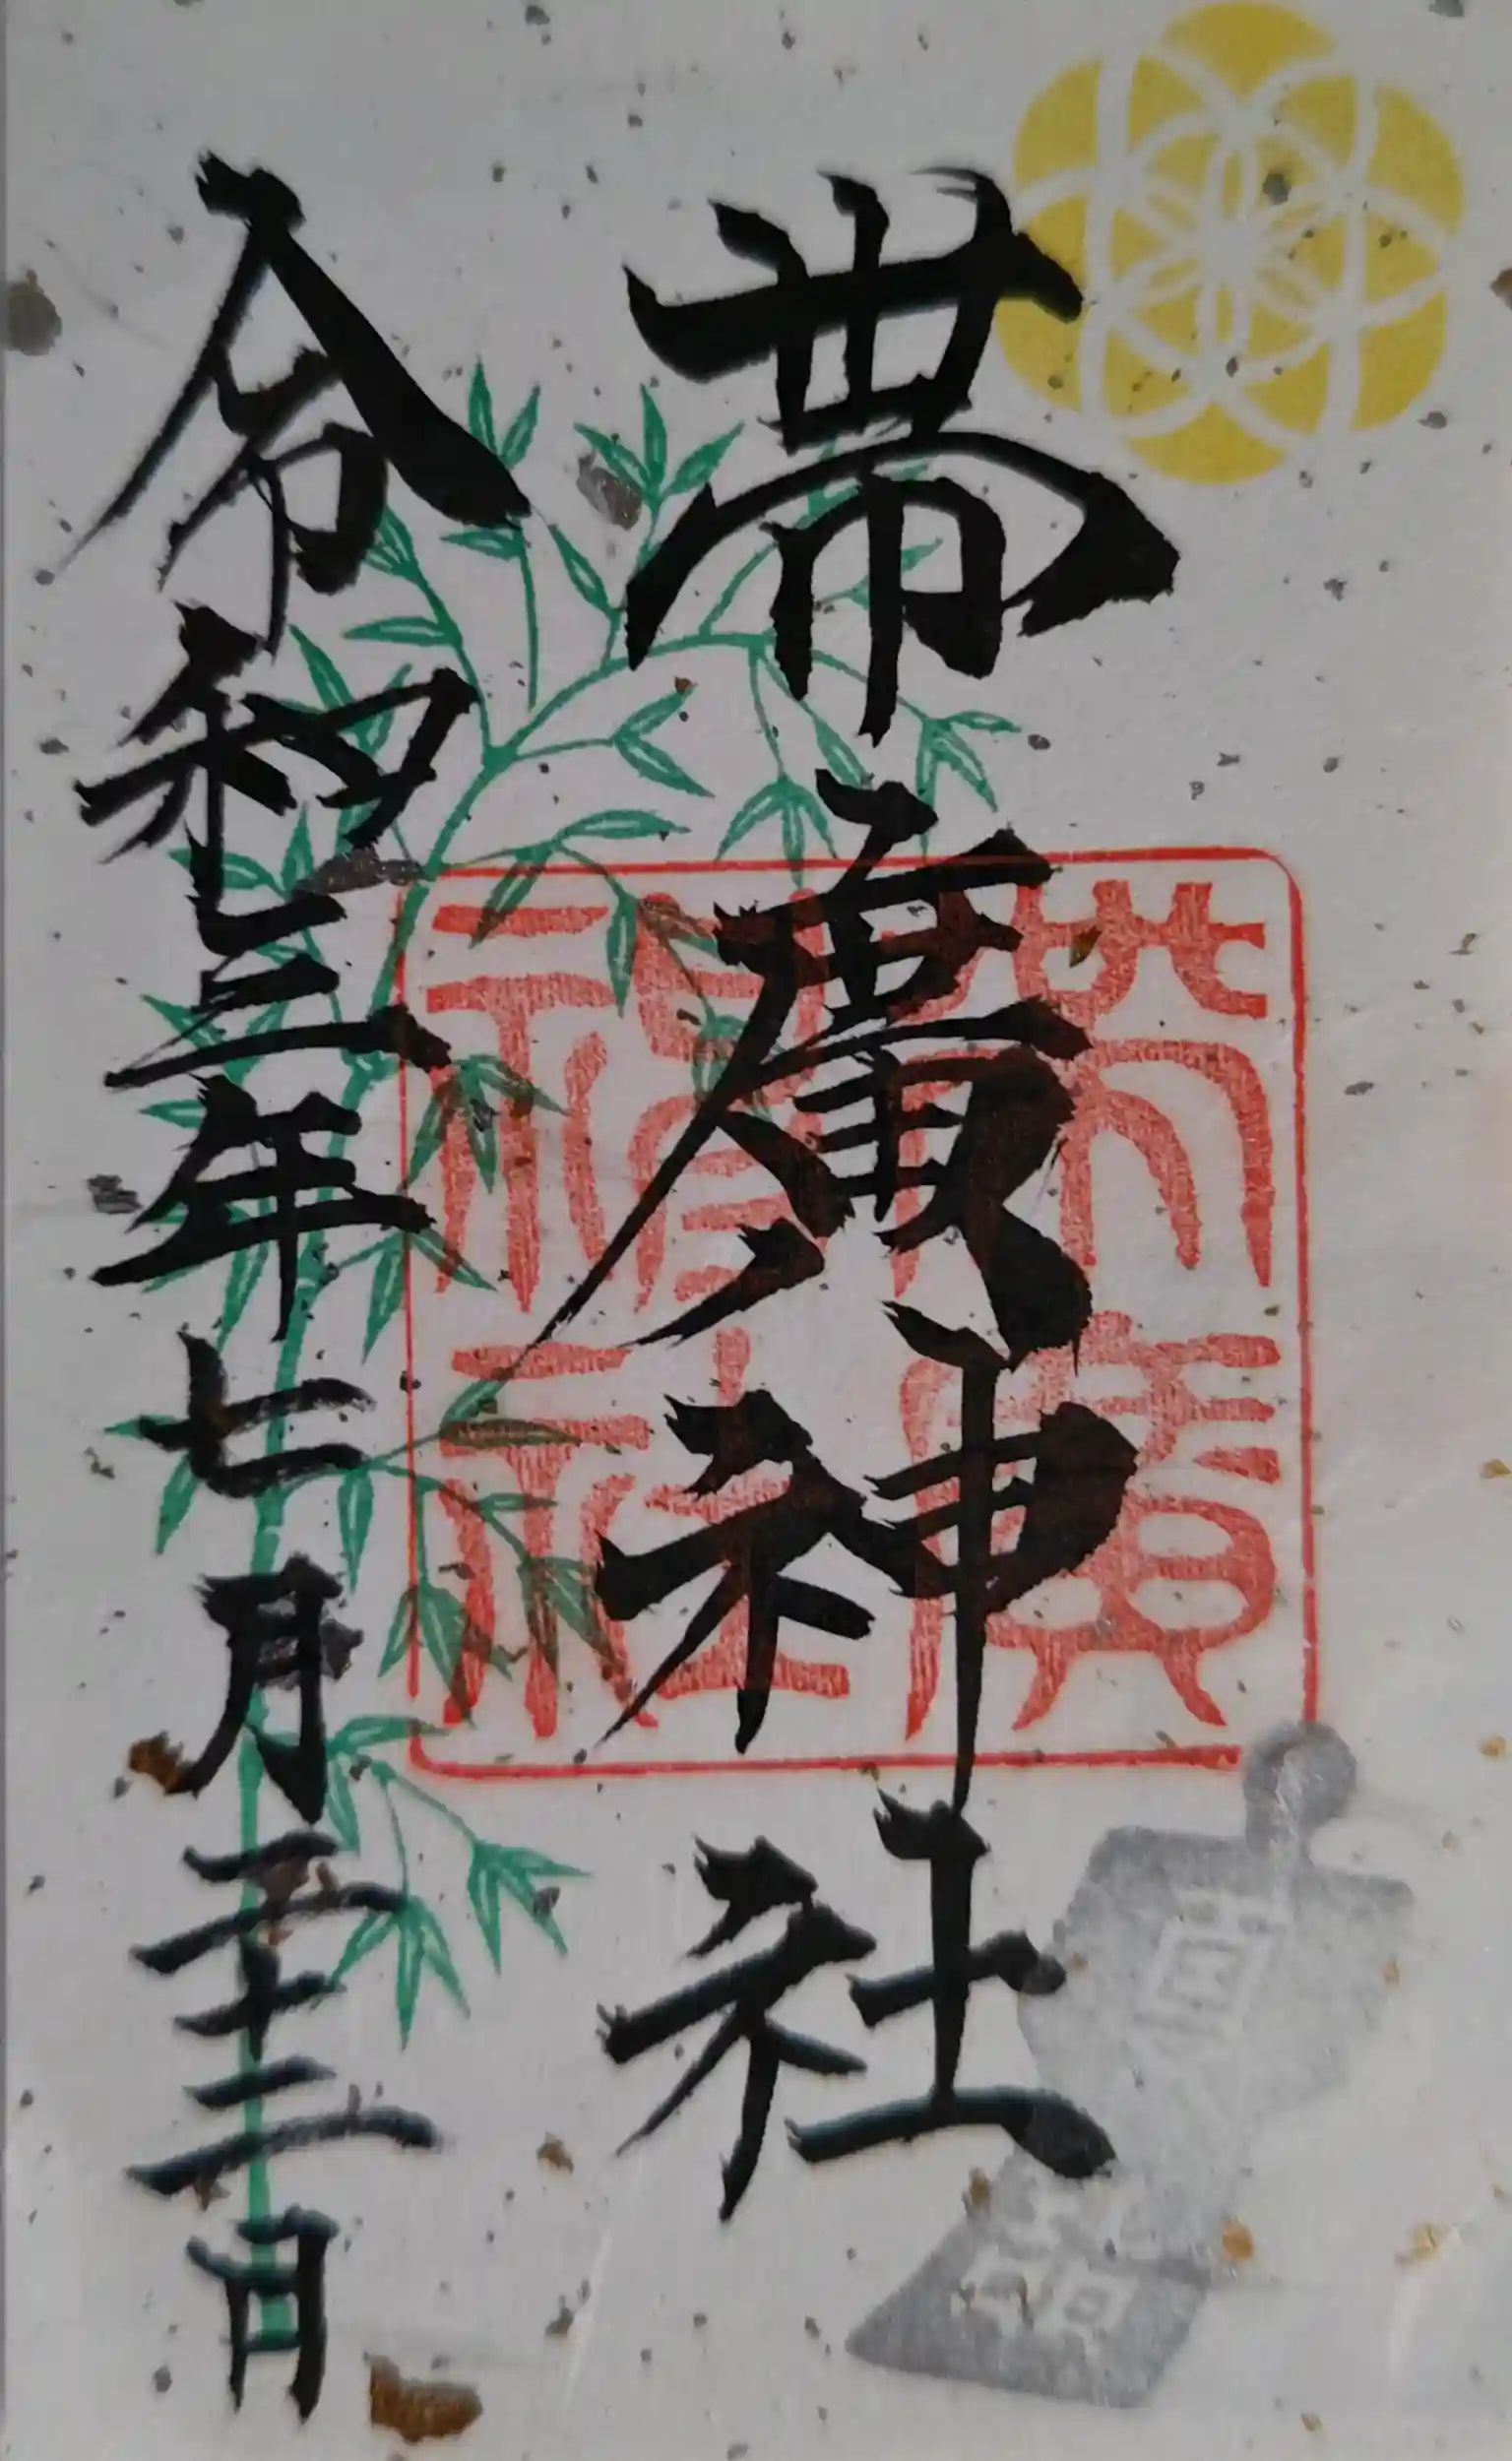 帯廣神社
帯廣
神社
令和三年七月二十二日